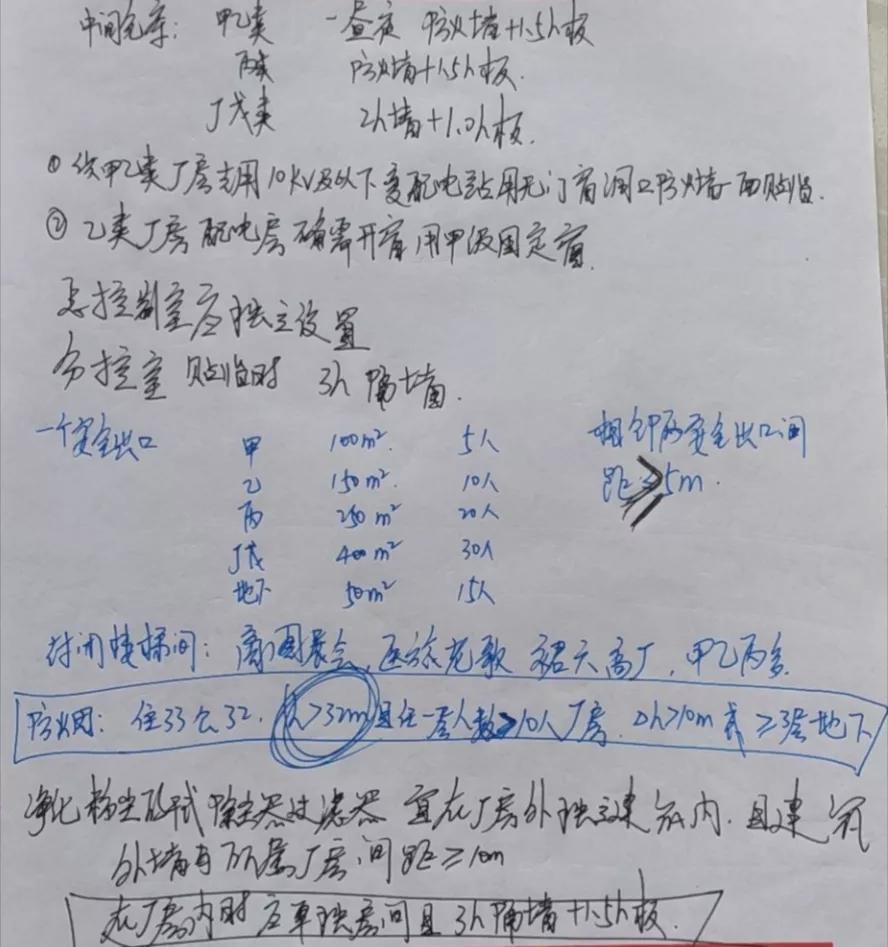 中间仓库: 甲乙类 一昼夜 防火墙+1.5h板
丙类 防火墙+1.5h板.
丁戊类 2h墙+1.0h板.
① 供甲乙类厂房专用10KV及以下变配电站用无门窗洞口防火墙一面贴临.
② 乙类厂房配电房确需开窗用甲级固定窗.
总控制室应独立设置
分控室 贴临时 3h隔墙.
一个安全出口 甲 100m² 5人 相邻两安全出口间
乙 150m² 10人 距≥5m.
丙 250m² 20人
丁戊 400m² 30人
地下 50m² 15人
封闭楼梯间: 商图展会, 医旅老歌 裙六高厂, 甲乙丙多.
防烟: 住33公32. h>32m且任一层人数>10人厂房. Δh>10m或≥3层地下
净化粉尘的干式除尘器过滤器 宜在厂房外独立建筑内. 且建筑
外墙与所属厂房间距≥10m
在厂房内时应单独房间且3h隔墙+1.5h板.